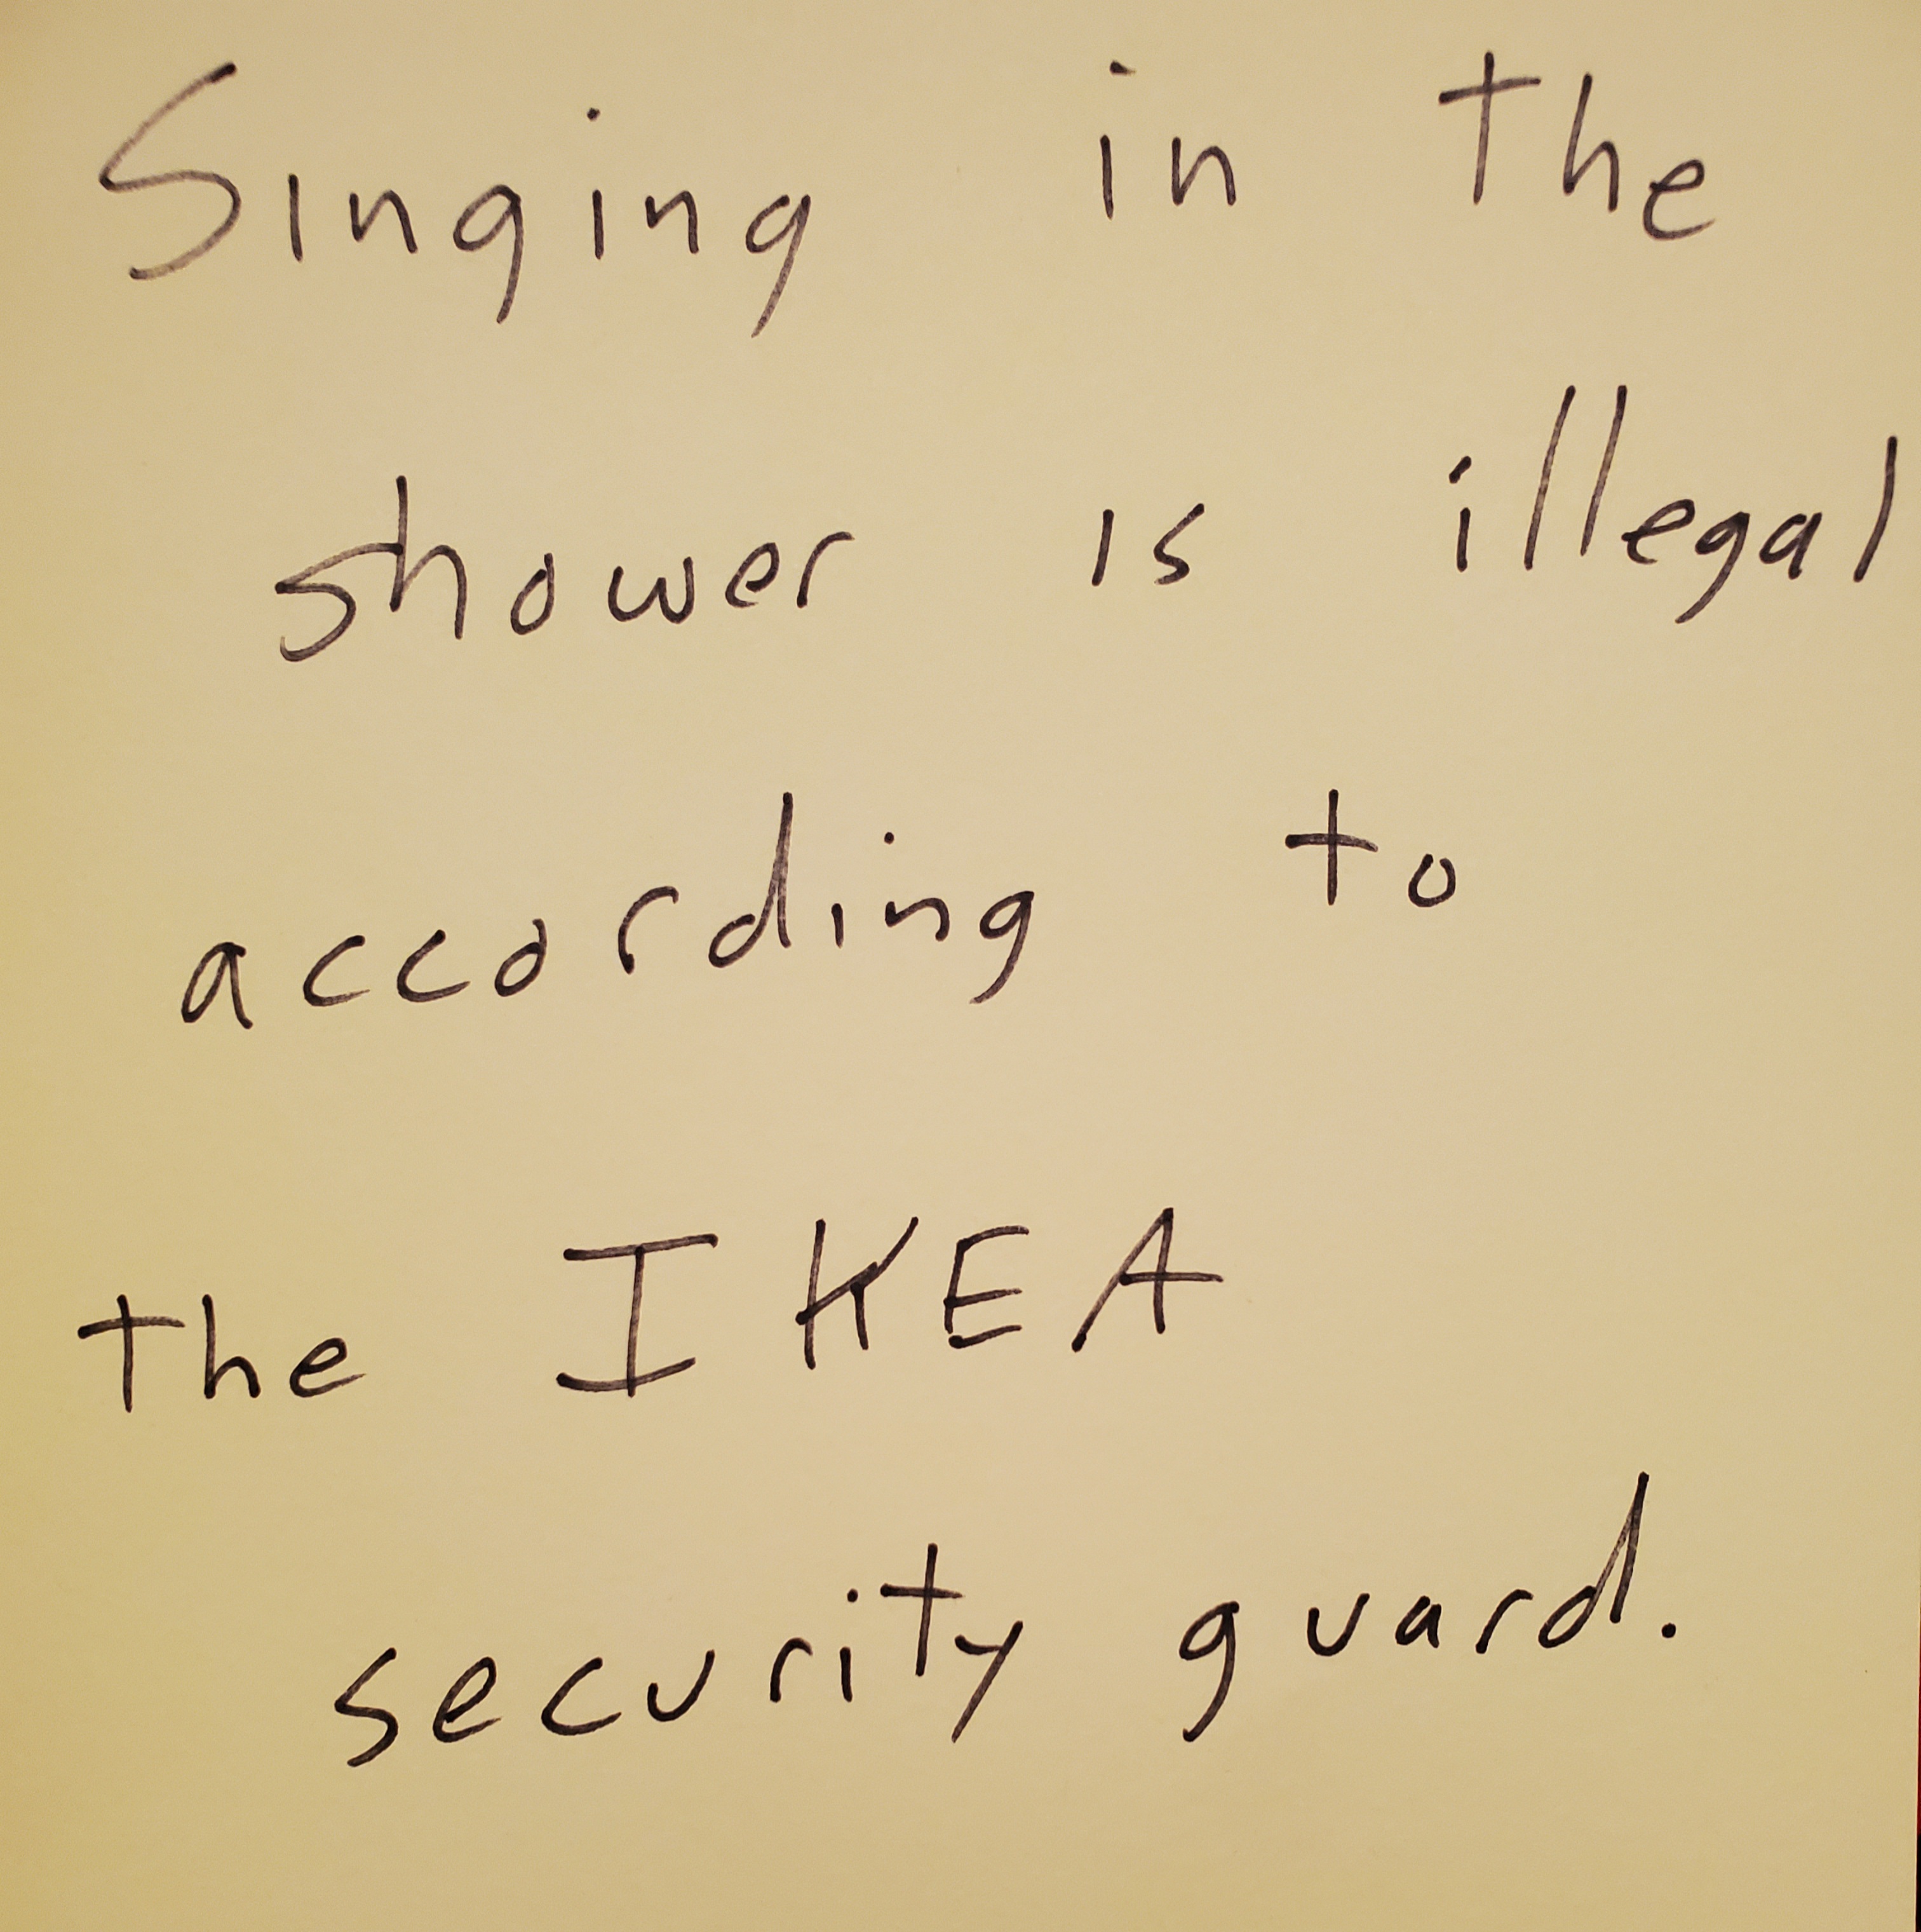 Singing in the
shower is illegal
according to
the IKEA
security guard.